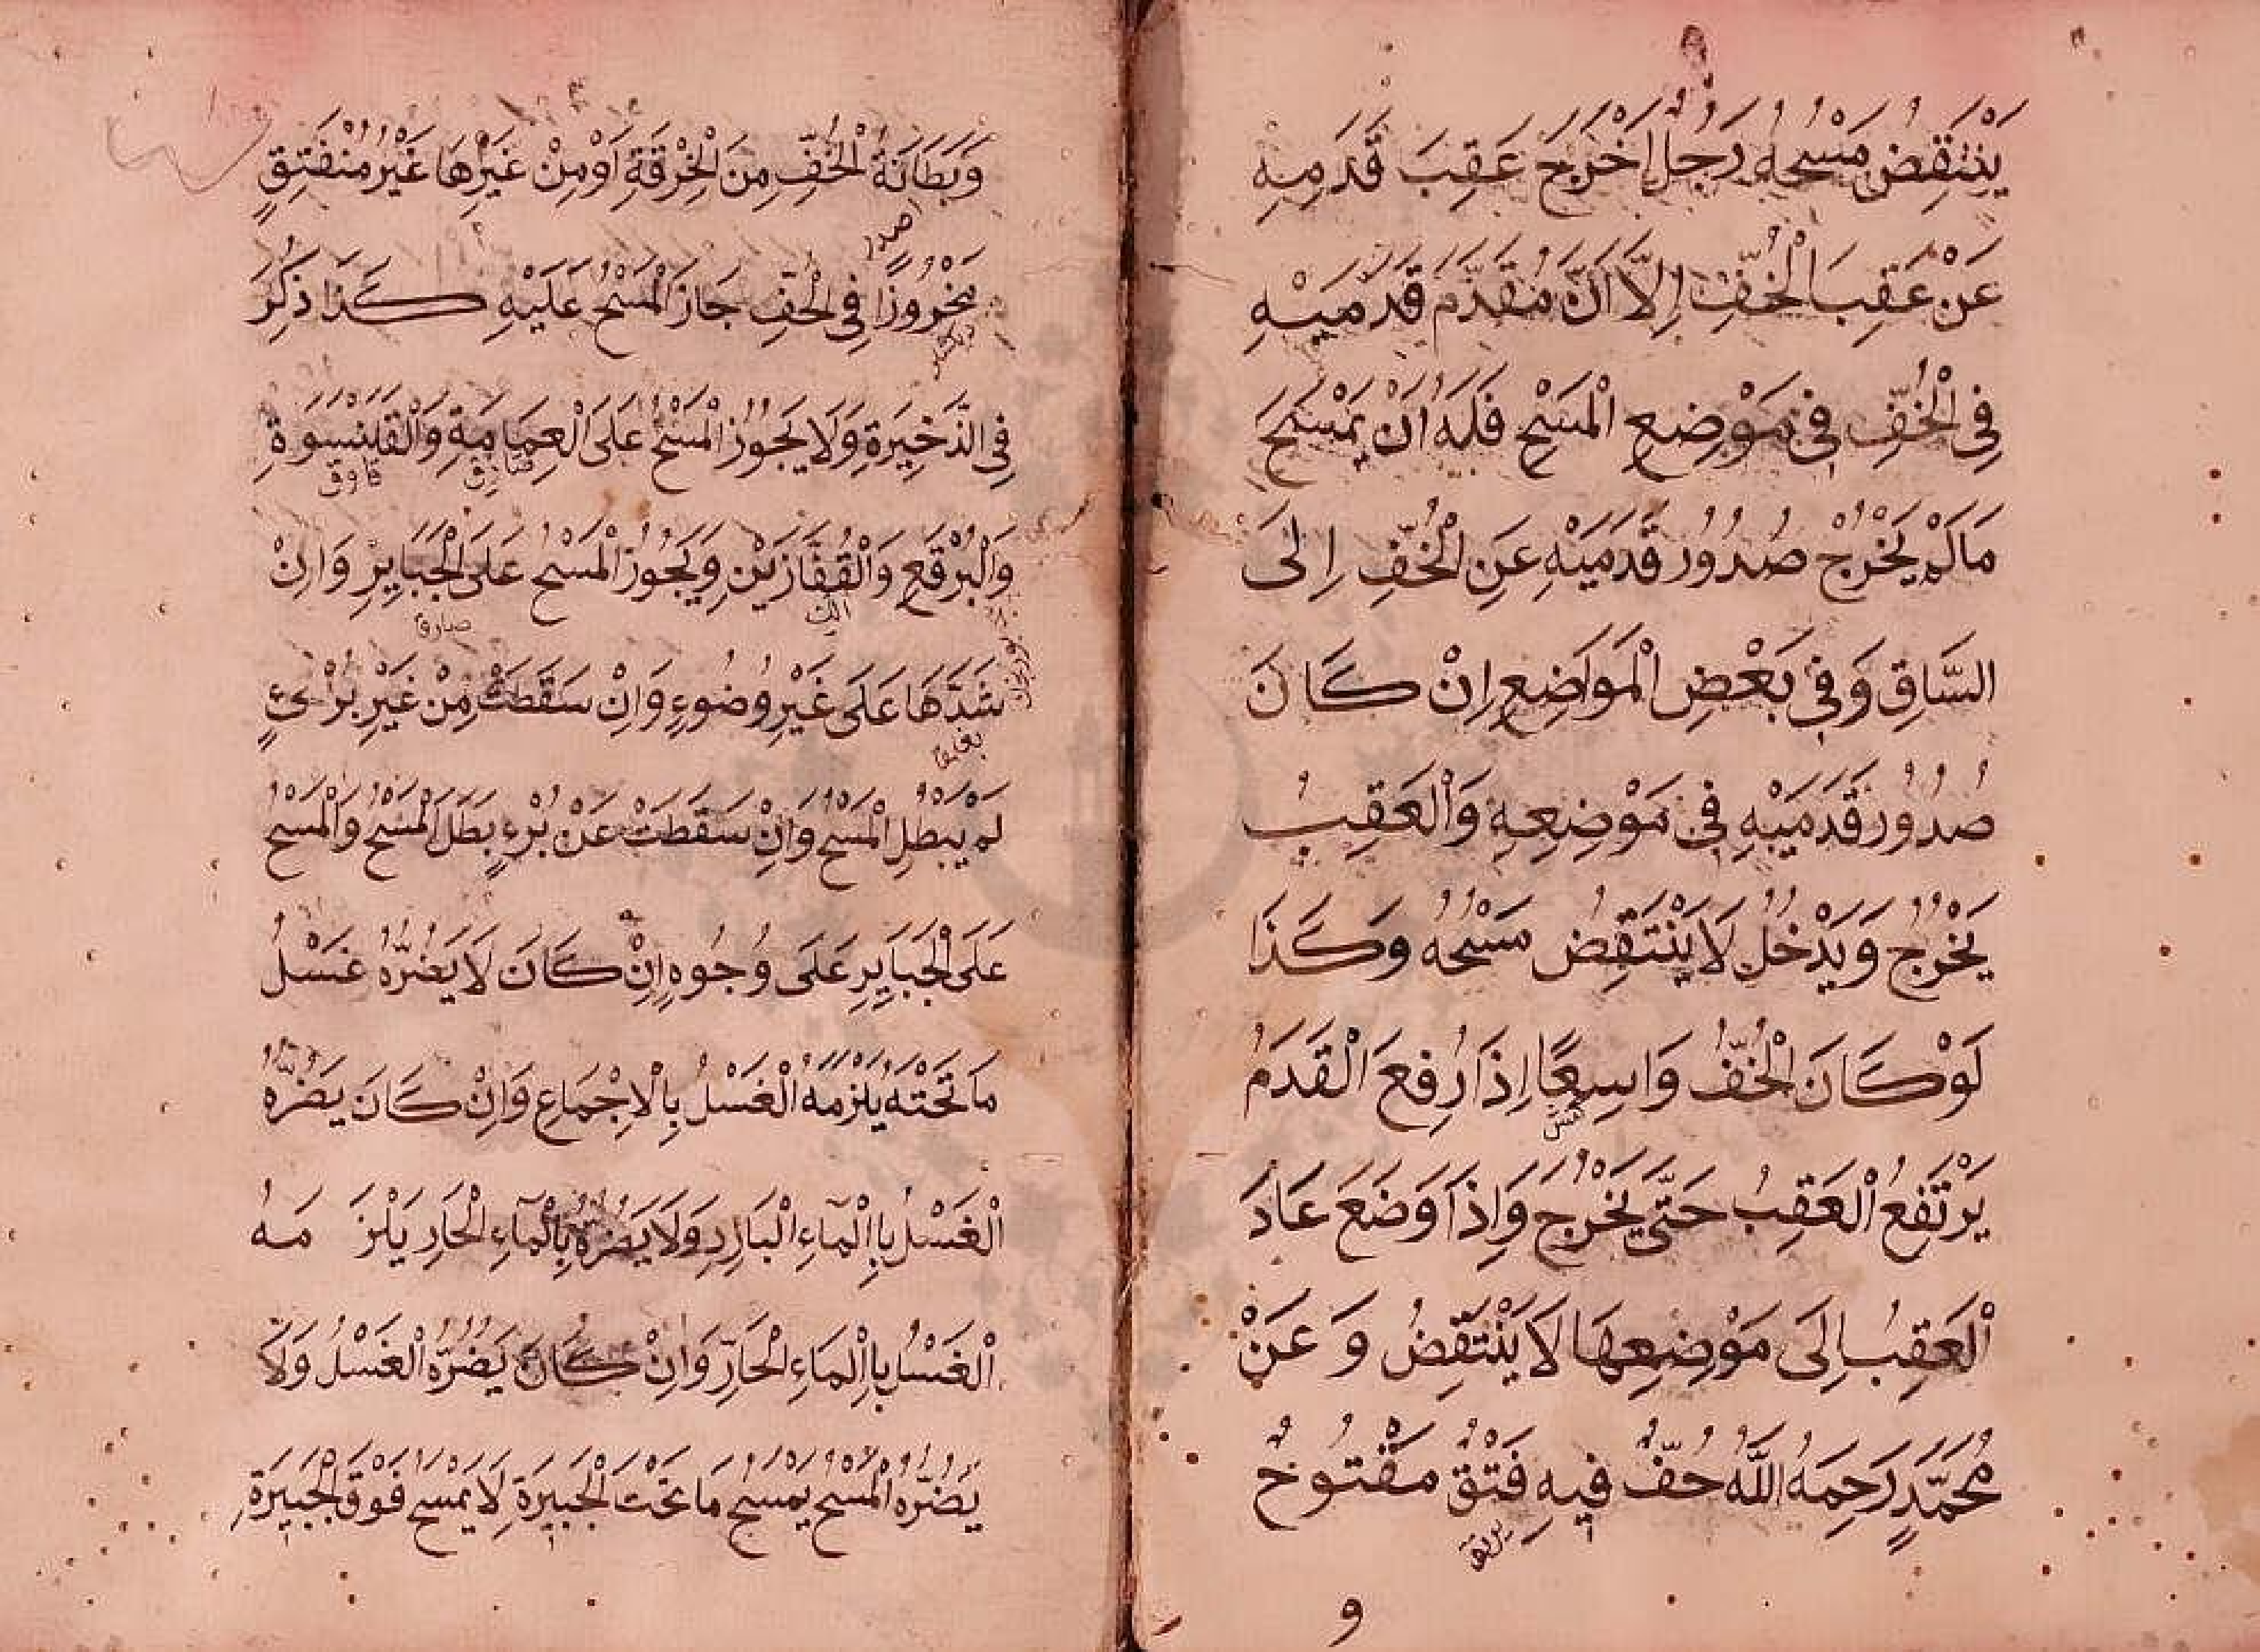 يَنْتَقِضُ مَسْحُهُ رَجُلٌ اَخْرَجَ عَقِبَ قَدَمِهِ
عَنْ عَقِبِ الْخُفِّ اِلَّا اَنَّ مُقَدَّمَ قَدَمَيْهِ
فِى الْخُفِّ فِى مَوْضِعِ الْمَسْحِ فَلَهُ اَنْ يَمْسَحَ
مَالَمْ يَخْرُجْ صُدُورُ قَدَمَيْهِ عَنِ الْخُفِّ اِلَى
السَّاقِ وَفِى بَعْضِ الْمَوَاضِعِ اِنْ كَانَ
صُدُورُ قَدَمَيْهِ فِى مَوْضِعِهِ وَالْعَقِبُ
يَخْرُجُ وَيَدْخُلُ لَا يَنْتَقِضُ مَسْحُهُ وَكَذَا
لَوْ كَانَ الْخُفُّ وَاسِعًا اِذَا رُفِعَ الْقَدَمُ
يَرْتَفِعُ الْعَقِبُ حَتَّى يَخْرُجَ وَاِذَا وَضَعَ عَادَ
الْعَقِبُ اِلَى مَوْضِعِهَا لَا يَنْتَقِضُ وَ عَنْ
مُحَمَّدٍ رَحِمَهُ اللّٰهُ خُفٌّ فِيهِ فَتْقٌ مَفْتُوحٌ
و
وَبَطَانَةُ الْخُفِّ مِنَ الْخِرْقَةِ اَوْ مِنْ غَيْرِهَا غَيْرُ مُنْفَتِقٍ
مَخْرُوزًا فِى الْخُفِّ جَازَ الْمَسْحُ عَلَيْهِ كَذَا ذُكِرَ
فِى الذَّخِيَرةِ وَلَا يَجُوزُ الْمَسْحُ عَلَى الْعِمَامَةِ وَالْقَلَنْسُوَةِ
قاوق
وَالْبُرْقَعِ وَالْقُفَّازَيْنِ وَيَجُوزُ الْمَسْحُ عَلَى الْجَبَايِرِ وَاِنْ
شَدَّهَا عَلَى غَيْرِ وُضُوءٍ وَاِنْ سَقَطَتْ مِنْ غَيْرِ بُرْئٍ
لَمْ يَبْطُلِ الْمَسْحُ وَاِنْ سَقَطَتْ عَنْ بُرْءٍ بَطَلَ الْمَسْحُ وَالْمَسْحُ
عَلَى الْجَبَايِرِ عَلَى وُجُوهٍ اِنْ كَانَ لَا يَضُرُّهُ غَسْلُ
مَا تَحْتَهُ يَلْزَمُهُ الْغَسْلُ بِالْاِجْمَاعِ وَاِنْ كَانَ يَضُرُّهُ
الْغَسْلُ بِالْمَآءِ الْبَارِدِ وَلَا يَضُرُّهُ بِالْمَآءِ الْحَارِ يَلْزَ مَهُ
الْغَسْلُ بِالْمَاءِ الْحَارِّ وَاِنْ كَانَ يَضُرُّهُ الْغَسْلُ وَلَا
يَضُرُّهُ الْمَسْحُ يَمْسَحُ مَا تَحْتَ الْجَبِيَرةِ لَا يَمْسَحُ فَوْقَ الْجَبِيَرةِ